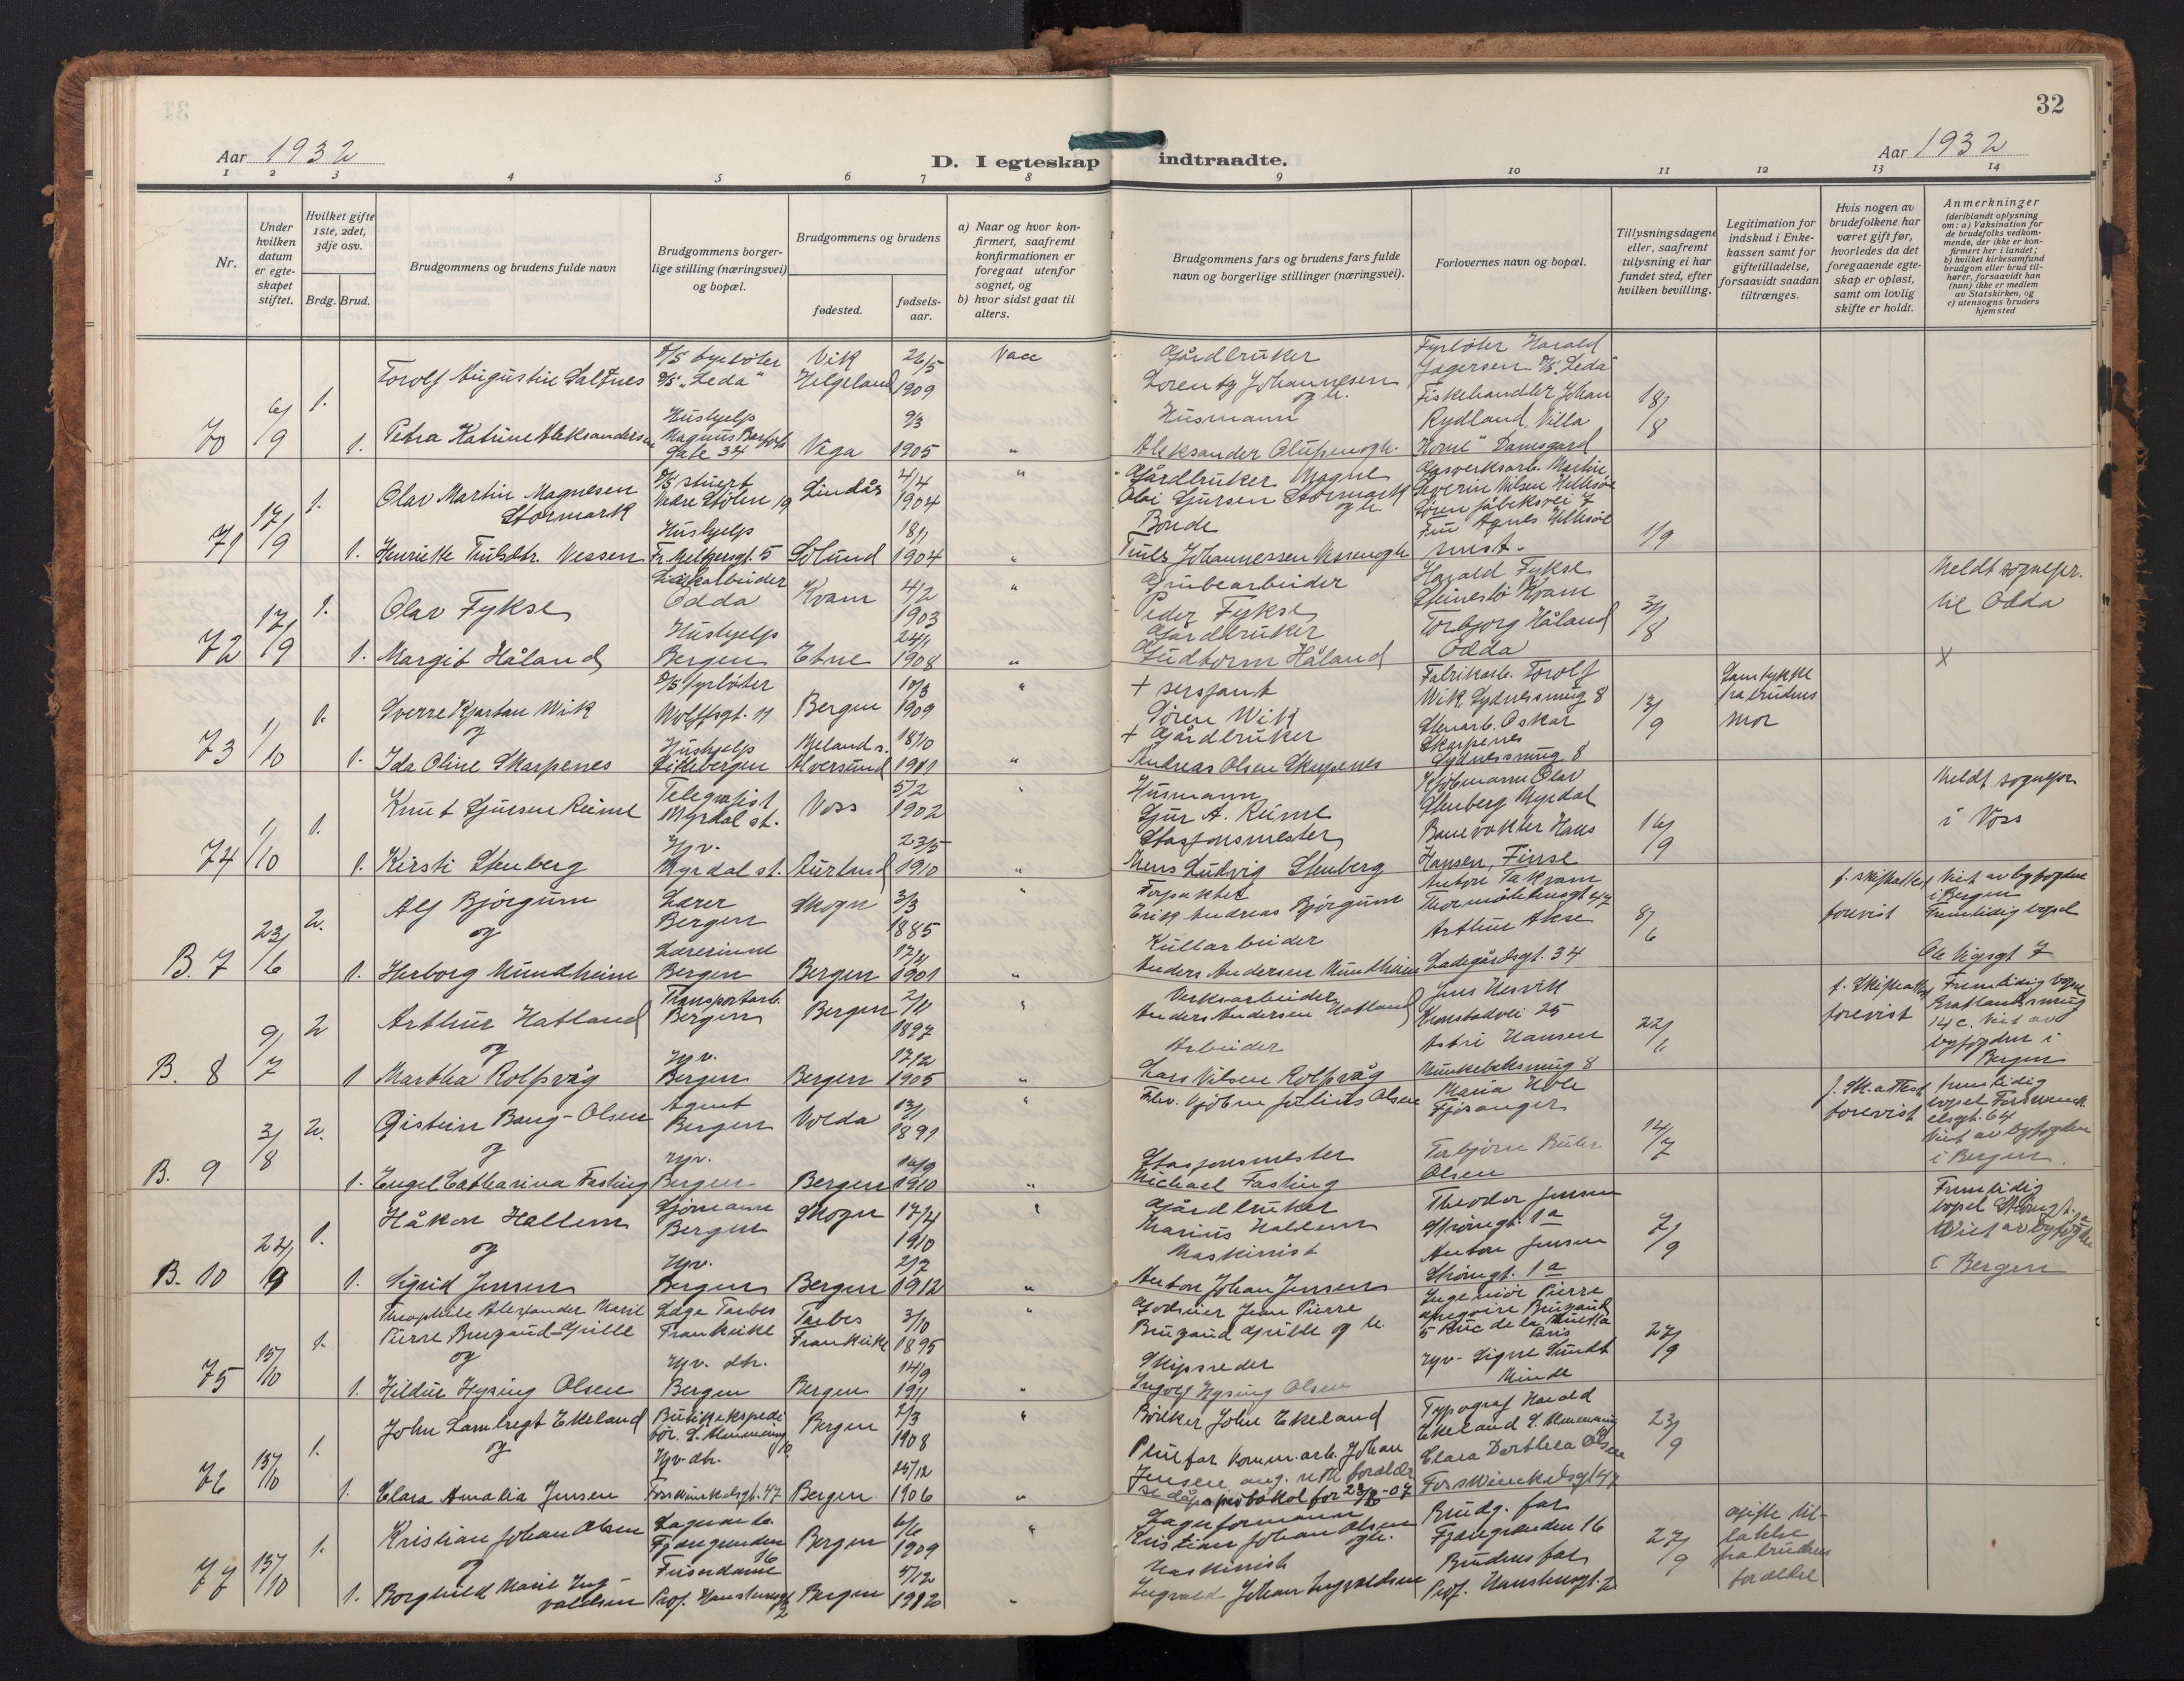 32
Aar 1932
D. I egteskap indtraadte.
Aar 1932
1 2 3 4 5 6 7 8 9 10 11 12 13 14
Nr.
Under hvilken datum er egteskapet stiftet.
Hvilket gifte 1ste, 2det, 3dje osv.
Brdg. Brud.
Brudgommens og brudens fulde navn
Brudgommens borgerlige stilling (næringsvei) og bopæl.
Brudgommens og brudens
fødested.
fødselsaar.
a) Naar og hvor konfirmert, saafremt konfirmationen er foregaat utenfor sognet, og
b) hvor sidst gaat til alters.
Brudgommens fars og brudens fars fulde navn og borgerlige stillinger (næringsvei).
Forlovernes navn og bopæl.
Tillysningsdagene eller, saafremt tillysning ei har fundet sted, efter hvilken bevilling.
Legitimation for indskud i Enkekassen samt for giftetilladelse, forsaavidt saadan tiltrænges.
Hvis nogen av brudefolkene har været gift før, hvorledes da det foregaaende egteskap er opløst, samt om lovlig skifte er holdt.
Anmerkninger
(deriblandt oplysning om: a) Vaksination for de brudefolks vedkommende, der ikke er konfirmert her i landet; b) hvilket kirkesamfund brudgom eller brud tilhører, forsaavidt han (hun) ikke er medlem av Statskirken, og c) utensogns bruders hjemsted
70 6/9 1. Torolf Augustin Saltnes D/S fyrbøter D/S "Leda" Vik Helgeland 26/5 1909
Gårdbruker Lorentz Johannesen og h. Fyrbøter Harald Jagersen D/S "Leda" 18/8
1. Petra Katrine Aleksandersen Hushjelp Magnus Barfots gate 34 Vega 9/3 1905 "
Husmann Aleksander Olufsen og h. Fiskehandler Johan Rydland, Villa "Horne" Damsgård
71 17/9 1. Olav Martin Magnesen Stormark D/S stuert Lindås 4/4 1904 "
Gårdbruker Magne Stormark og h. Gasverksarb. Martin Severin Nilsen 1/9
1. Henrikke Vessen Hushjelp Fr. Meltzersgt. 5 Solund 18/1 1904 "
Bonde Johannessen Vessen og h. Fru Agnes
72 17/9 1. Olav Fykse Odda Kvam 4/2 1903 "
Grubearbeider Peder Fykse Harald Fykse Steinstø Kvam 3/8
Meldt sognepr. til Odda
1. Margit Håland Hushjelp Bergen Etne 24/1 1908 "
Gårdbruker Gudtorm Håland Torbjørg Håland Odda X
73 1/10 1. Sverre Kjartan Wik og D/S fyrbøter Wolffsgt. 11 Bergen 10/3 1909 "
+ sersjant Søren Wik Fabrikarb. Torolf Wik, Sydnessmug 8 13/9 Samtykke fra brudens mor
1. Ida Oline Skarpenes Hushjelp Litlebergen Meland s. Alversund 18/10 1911 "
+ Gårdbruker Andreas Olsen Skarpenes Stenarb. Oskar Skarpenes Sydnessmug 8
74 1/10 1. Knut Sjursen Reime Telegrafist Myrdal st. Voss 5/2 1902
Husmann Sjur A. Reime Kjøbmann Olav Stenberg Myrdal 16/9
Meldt sognepr. i Voss
1. Kirsti Stenberg Hjv. Myrdal st. Aurland 23/5 1910 "
Stasjonsmester Mons Ludvig Stenberg Banevokter Hans Hansen, Finse
B. 7 23/6 2. Alf Bjørgum og Lærer Bergen Skogn 3/3 1885 "
Forpakter Erik Andreas Bjørgum Anton Takvam Thormøhlensgt 47 8/6
f. skifteattest forevist
Viet av byfogden i Bergen Fremtidig bopel Ole Vigsgt 7
1. Herborg Mundheim Lærerinne Bergen Bergen 17/4 1901 "
Kullarbeider Anders Andersen Mundheim Arthur Aase Ladegårdsgt. 34
B. 8 9/7 2 Arthur Hatland og Transportarb. Bergen Bergen 2/11 1897 "
Verksarbeider Anders Andersen Hatland Jens Nesvik Kronstadvei 25 22/6
f. Skifteattest forevist
Fremtidig bopel 14 c. Viet av byfogden i Bergen
1 Martha Rolfsvåg Hjv. Bergen Bergen 17/12 1905 "
Arbeider Lars Nilsen Rolfsvåg Astri Hansen Munkebeksmug 8
B. 9 3/8 2. Øistein Bang-Olsen og Agent Bergen Volda 13/1 1891 "
Fhv. kjøbm. Julius Olsen Maria Hole Fjøsanger 14/7
f. Sk.attest forevist
fremtidig bopel Viet av byfogden i Bergen.
1. Engel Catharina Fasting Hjv. Bergen Bergen 16/9 1910 "
Stasjonsmester Michael Fasting Torbjørn Olsen
B. 10 24/9 1. Håkon Hallem og Sjømann Bergen Skogn 17/4 1910 "
Gårdbruker Marius Hallem Theodor Jensen Strømgt. 1a 7/9
Fremtidig bopel Strømgt. 1a Viet av byfogden i Bergen
1. Sigrid Jensen Hjv. Bergen Bergen 2/7 1912 "
Maskinist Anton Johan Jensen Anton Jensen Strømgt. 1a
75 15/10 1. Theophile Alexander Marie Pierre Brugaud-Grille og Tarbes Frankrike Tarbes Frankrike 3/10 1895 "
Godseier Jean Pierre Brugaud Grille og h. Ingeniør Pierre Gregoire 5 Rue de la Paris 27/9
1. Hildur Hysing Olsen Hjv. dtr. Bergen Bergen 14/9 1911 "
Skipsreder Ingolf Hysing Olsen Hjv. Signe Sundt Minde
76 15/10 1. John Lambregt Ekeland og Butikkekspeditør Bergen 2/3 1908 "
Bøkker John Ekeland Typograf Harald Ekeland 23/9
1. Clara Amalia Jensen Hjv. dtr. Forswinckelsgt. 47 Bergen 25/12 1906 "
Pleiefar Komm.arb. Johan Jensen se dåpsprotokol for 23/6-07 Clara Dorthea Olsen Forswinckelsgt 47
77 15/10 1. Kristian Johan Olsen og Lagerarb. Fjøsangrenden 16 Bergen 6/6 1909 "
Lagerformann Kristian Johan Olsen og h. Brudg. far 27/9 Gifte tillatelse fra brudens foreldre
1. Borghild Marie Ingvaldsen Frisørdame Prof. Hansteensgt. 2 Bergen 5/12 1912 "
Maskinist Ingvald Johan Ingvaldsen Brudens far Prof. Hansteensgt. 2